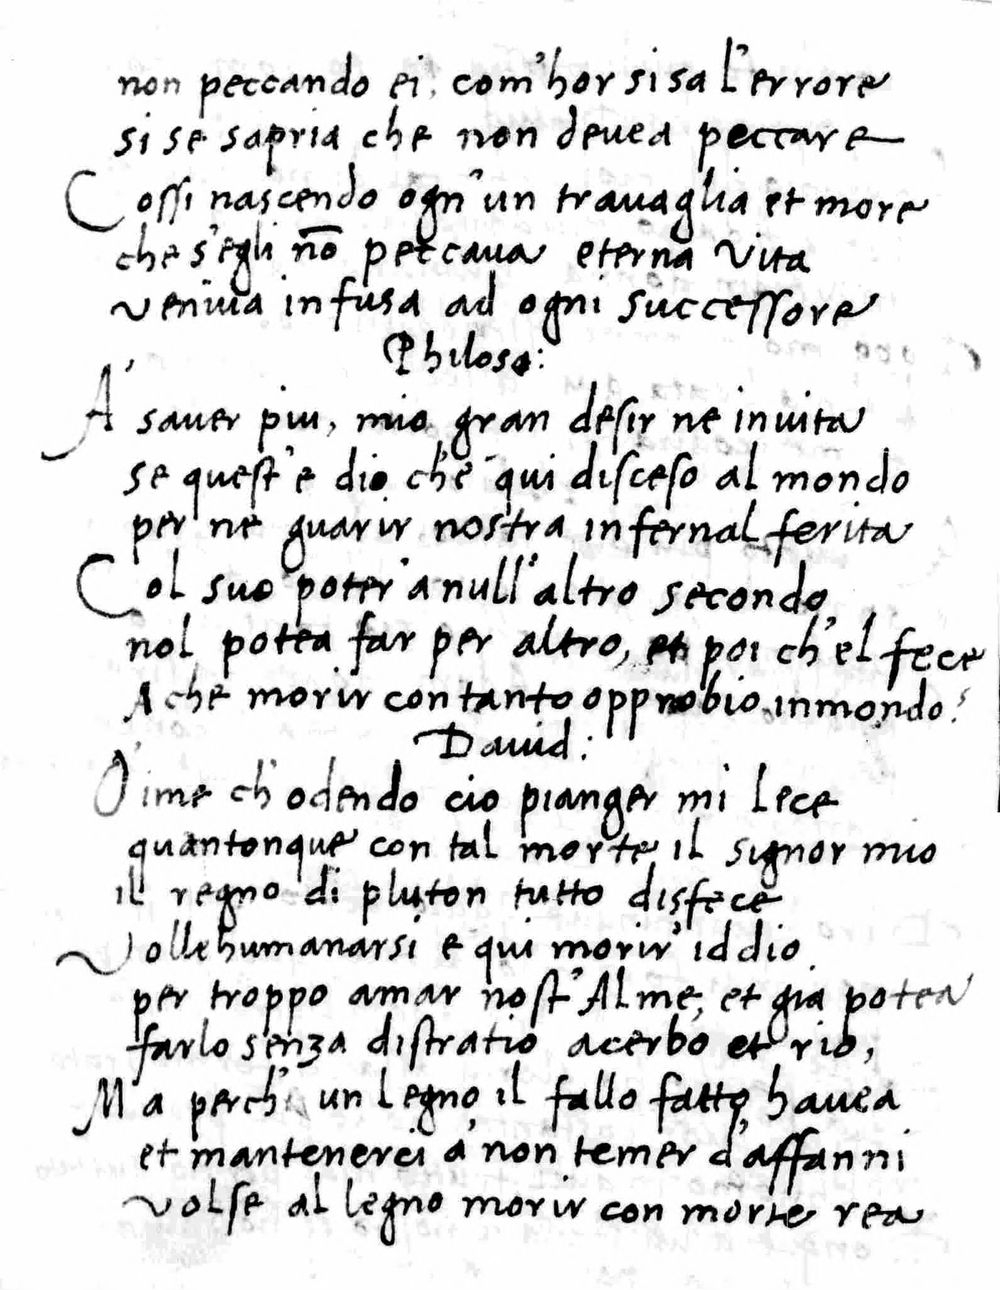 non peccando ei, com'hor si sa l'errore
si se sapria che non deuea peccare
Cossi nascendo ogn'un trauaglia et more
che s'egli nō peccaua eterna vita
veniua infusa ad ogni successore
Philoso:
A' sauer piu, mio gran desir ne inuita
se quest'è dio ch'è qui disceso al mondo
per ne guarir nostra infernal ferita
Col suo poter a null'altro secondo,
nol potea far per altro, et poi ch'el fece
A che morir con tanto opprobio inmondo?
Dauid:
O'ime ch'odendo cio pianger mi lece
quantonque con tal morte il signor mio
il regno di pluton tutto disfece
Volle humanarsi e qui morir' iddio
per troppo amar nost'Alme, et gia potea
farlo senza distratio acerbo et rio,
Ma perch' un legno il fallo fatto hauea
et mantenerci a' non temer d'affanni
volse al legno morir con morte rea